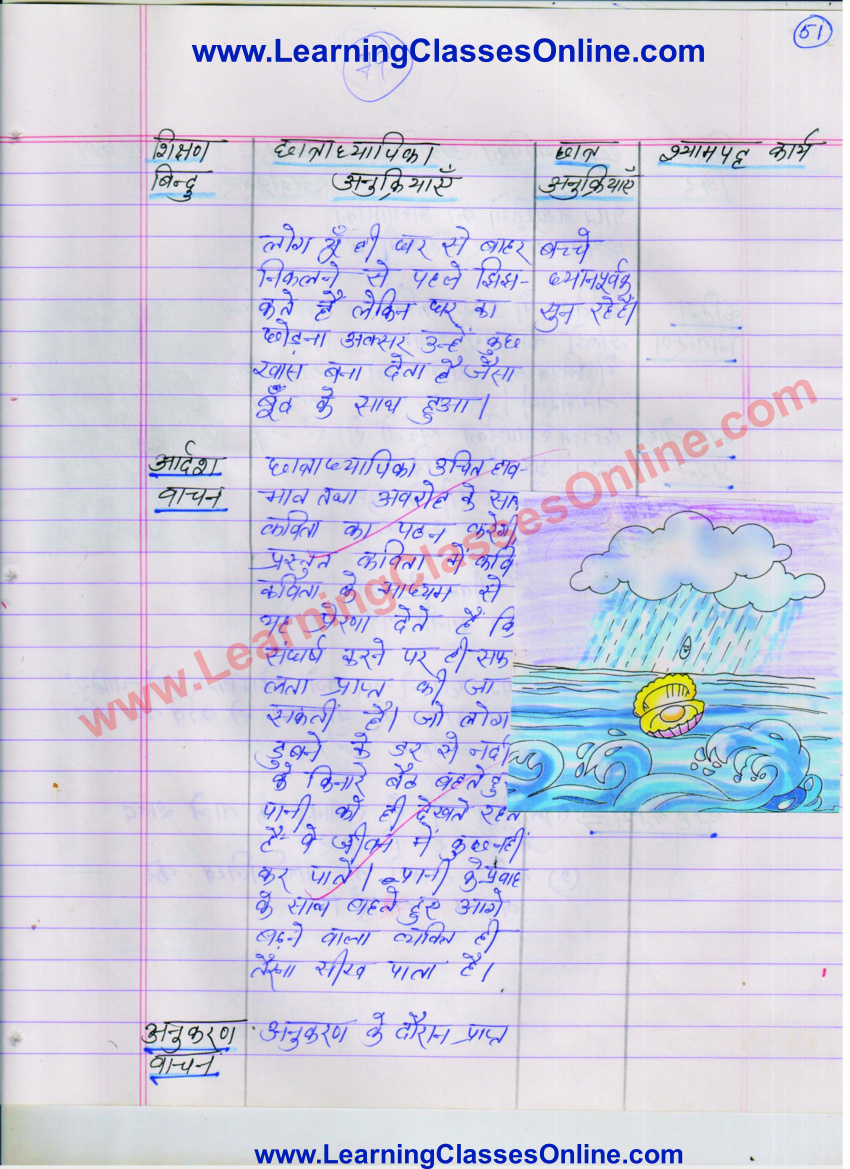 www.LearningClassesOnline.com
51
47
शिक्षण छात्राध्यापिका छात्र श्यामपट्ट कार्य
बिन्दु अनुक्रियाएँ अनुक्रियाएँ
लोग यूँ ही घर से बाहर बच्चे
निकलने से पहले झिझ- ध्यानपूर्वक
कते हैं लेकिन घर का सुन रहे हैं।
छोड़ना अक्सर उन्हें कुछ
खास बना देता है जैसा
बूँद के साथ हुआ।
आर्दश छात्राध्यापिका उचित हाव-
वाचन भाव तथा अवरोह के साथ
कविता का पठन करेगी
प्रस्तुत कविता में कवि
कविता के माध्यम से
यह प्रेरणा देते हैं कि
संघर्ष करने पर ही सफ
लता प्राप्त की जा
सकती है। जो लोग
डुबने के डर से नदी
के किनारे बैठ बहते हु
पानी को ही देखते रहते
है वे जीवन में कुछ नहीं
कर पाते। पानी के प्रवाह
के साथ बहते हुए आगे
बढ़ने वाला व्यक्ति ही
तैरना सीख पाता है।
अनुकरण अनुकरण के दौरान प्राप्त
वाचन
www.LearningClassesOnline.com
www.LearningClassesOnline.com